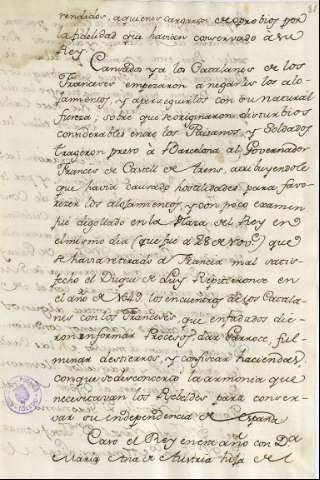 rendidos, a quienes cargaron de oprobios por
la fidelidad que havian conservado a su
Rey.
Cansados ya los Catalanes de los
Franceses empezaron a negarles los alo-
jamientos, y a perseguirlos con su natural
fiereza, sobre que se originaron disturbios
considerables entre los Paisanos, y Soldados
trageron preso à Barcelona al Governador
Frances de Castell de Arens, atribuyendole
que havia causado hostilidades para favo-
rezer los alojamientos, y con poco examen
fué degollado en la Plaza del Rey en
el mismo dia (que fué a 28 de Nov.e) que
se havia retirado a Francia mal satis-
fecho el Duque de Luy. Repitieronse en
el año de 1649 los encuentros de los Catala-
nes con los Franceses, que enfadados die-
ron en formar Procesos, dar Garrote, ful-
minar destierros, y confiscar haciendas,
con que se desconcertó la armonia que
necesitavan los Rebeldes para conser-
var su independencia de España
Casó el Rey en este año con D.a
Maria Ana de Austria hija del